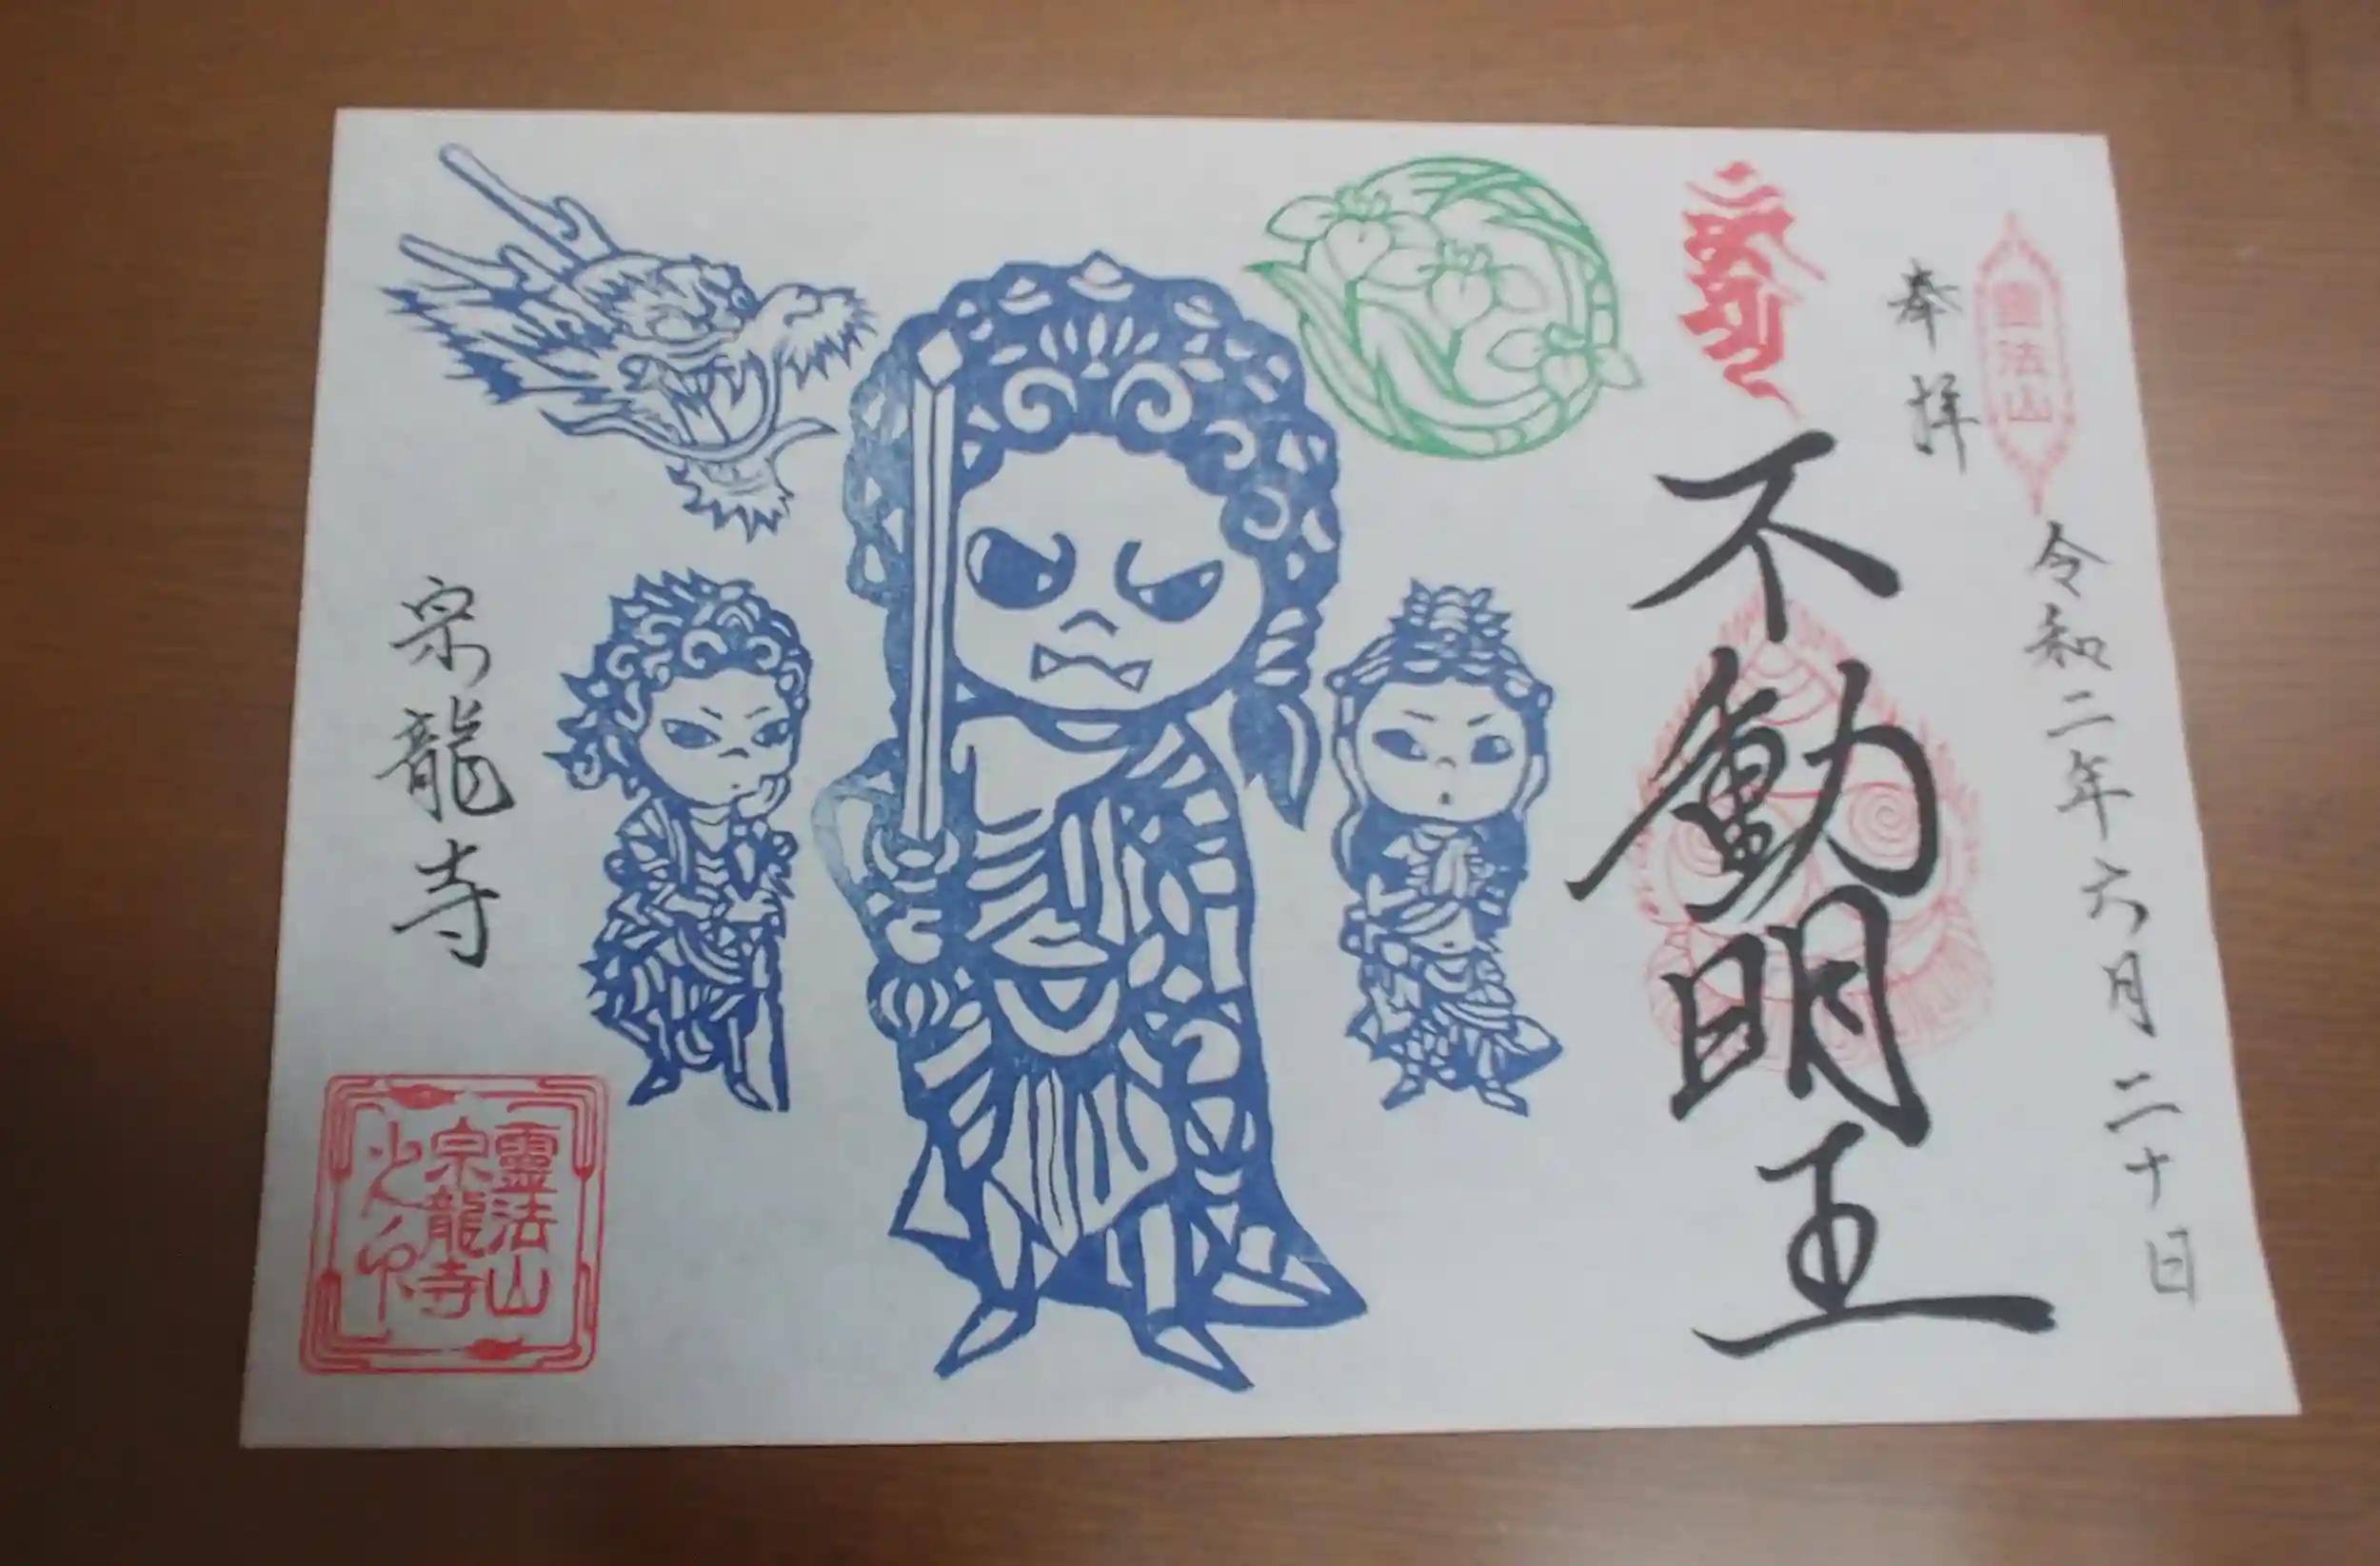 奉拝
靈法山
令和二年六月二十日
不動明王
宗龍寺
靈法山
宗龍寺
之印